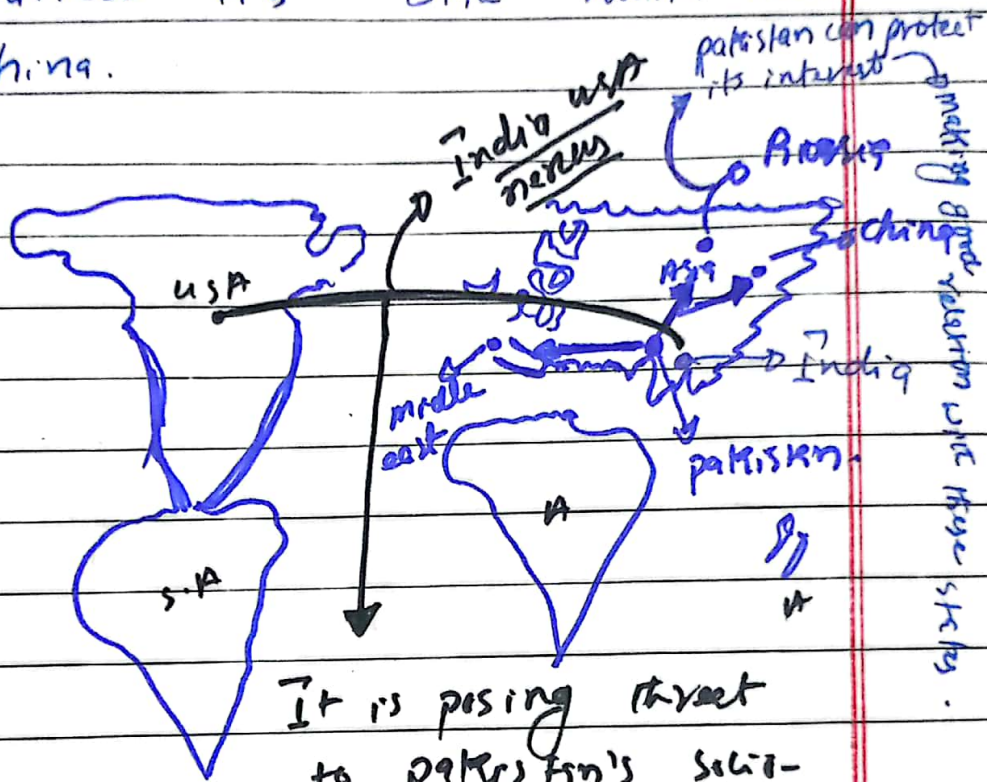 hina.
pakistan can protect
its interest
making good relation with these states.
India USA
nexus
Russia
China
Asia
USA
India
middle
east
pakistan.
A
S.A
A
It is posing threet
to pakistan's socio-